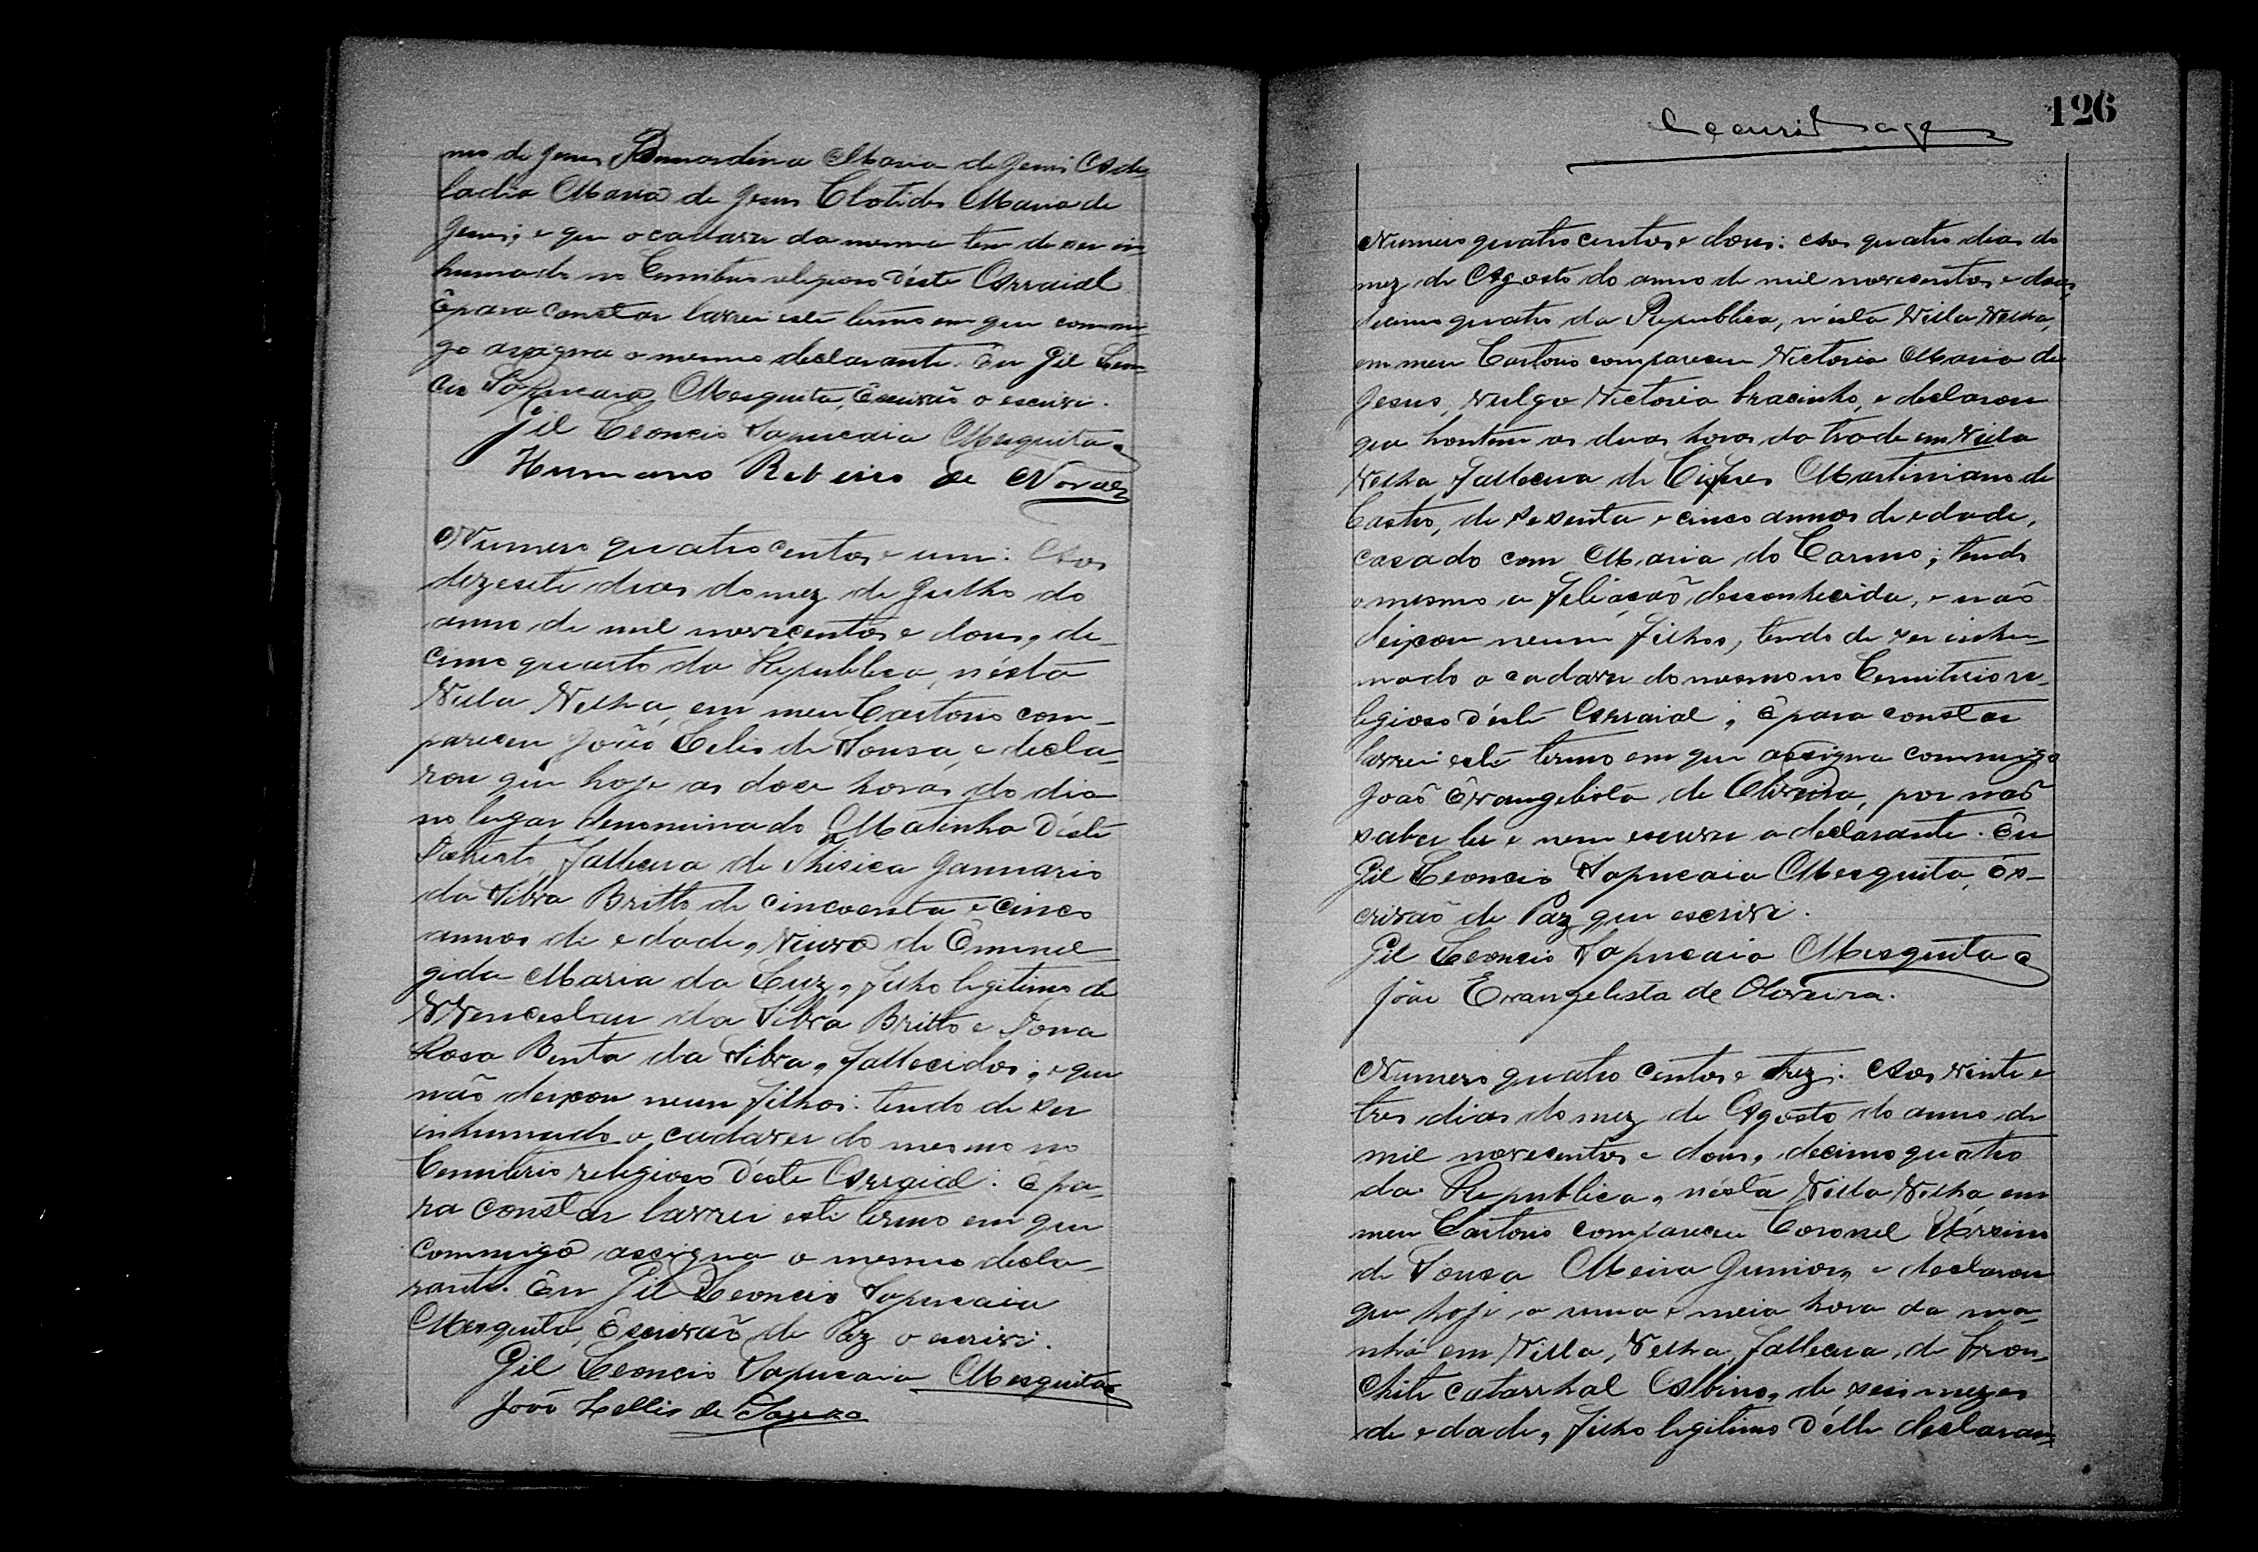 mo de Jesus Bernardina Maria de Jesus Ade-
ladia Maria de Jesus Clotides Maria de
Jesus; e que o cadaver da mesma tem de ser in-
humado no Cemiterio religioso d'este Arraial
E para constar lavrei este termo em que commi-
go assigna o mesmo declarante. Eu Gil Leon-
cio Sapucaia Mesquita, Escrivão o escrivi.
Gil Leoncio Sapucaia Mesquita
Humano Ribeiro de Novaes
Numero quatro centos e um: Aos
dezesete dias do mez de Julho do
anno de mil novecentos e dous, de-
cimo quarto da Republica, n'ésta
Villa Velha, em meu Cartorio com-
pareceu João Lelis de Sousa, e decla-
rou que hoje as doce horas do dia
no lugar denominado Matinha d'éste
Districto, fallecera de Thisica Januario
da Silva Britto de cincoenta e cinco
annos de edade, viuvo de Ermel-
gida Maria da Luz, filho legitimo de
Wenceslau da Silva Britto e Dona
Rosa Benta da Silva, fallecidos, e que
não deixou neum filhos: tendo de ser
inhumado o cadaver do mesmo no
Cemiterio religioso d'éste Arraial: E pa-
ra constar lavrei este termo em que
commigo assigna o mesmo decla-
rante. Eu Gil Leoncio Sapucaia
Mesquita, Escrivão de Paz o escrivi.
Gil Leoncio Sapucaia Mesquita
João Lellis de Souza
126
Numero quatro centos e dous: Aos quatro dias do
mez de Agosto do anno de mil novecentos e dous,
decimo quatro da Republica, n'ésta Villa Velha,
em meu Cartorio compareceu Victoria Maria de
Jesus, vulgo Victoria bracinho, e declarou
que hontem as duas horas da trade em Villa
Velha fallecera de Martiniano de
Castro, de sesenta e cinco annos de edade,
casado com Maria do Carmo; tendo
o mesmo a filiação desconhecida, e não
deixou neum filhos, tendo de ser inhu-
mado o cadaver do mesmo no Cemiterio re-
ligioso d'éste Arraial; E para constar
lavrei este termo em que assigna commigo
João Evangelista de Oliveira, por não
saber ler e nem escrever a declarante. Eu
Gil Leoncio Sapucaia Mesquita, Es-
crivão de Paz que escrivi.
Gil Leoncio Sapucaia Mesquita
João Evangelista de Oliveira.
Numero quatro centos e trez: Aos vinte e
tres dias do mez de Agosto do anno de
mil novecentos e dous, decimo quatro
da Republica, n'ésta Villa Velha em
meu Cartorio compareceu Coronel
de Sousa Meira Junior, e declarou
que hoje a uma e meia hora da ma-
nhã em Villa, Velha, fallecera, de bron-
chite catarrhal Albino, de seis mezes
de edade, filho legitimo d'élle declaran-